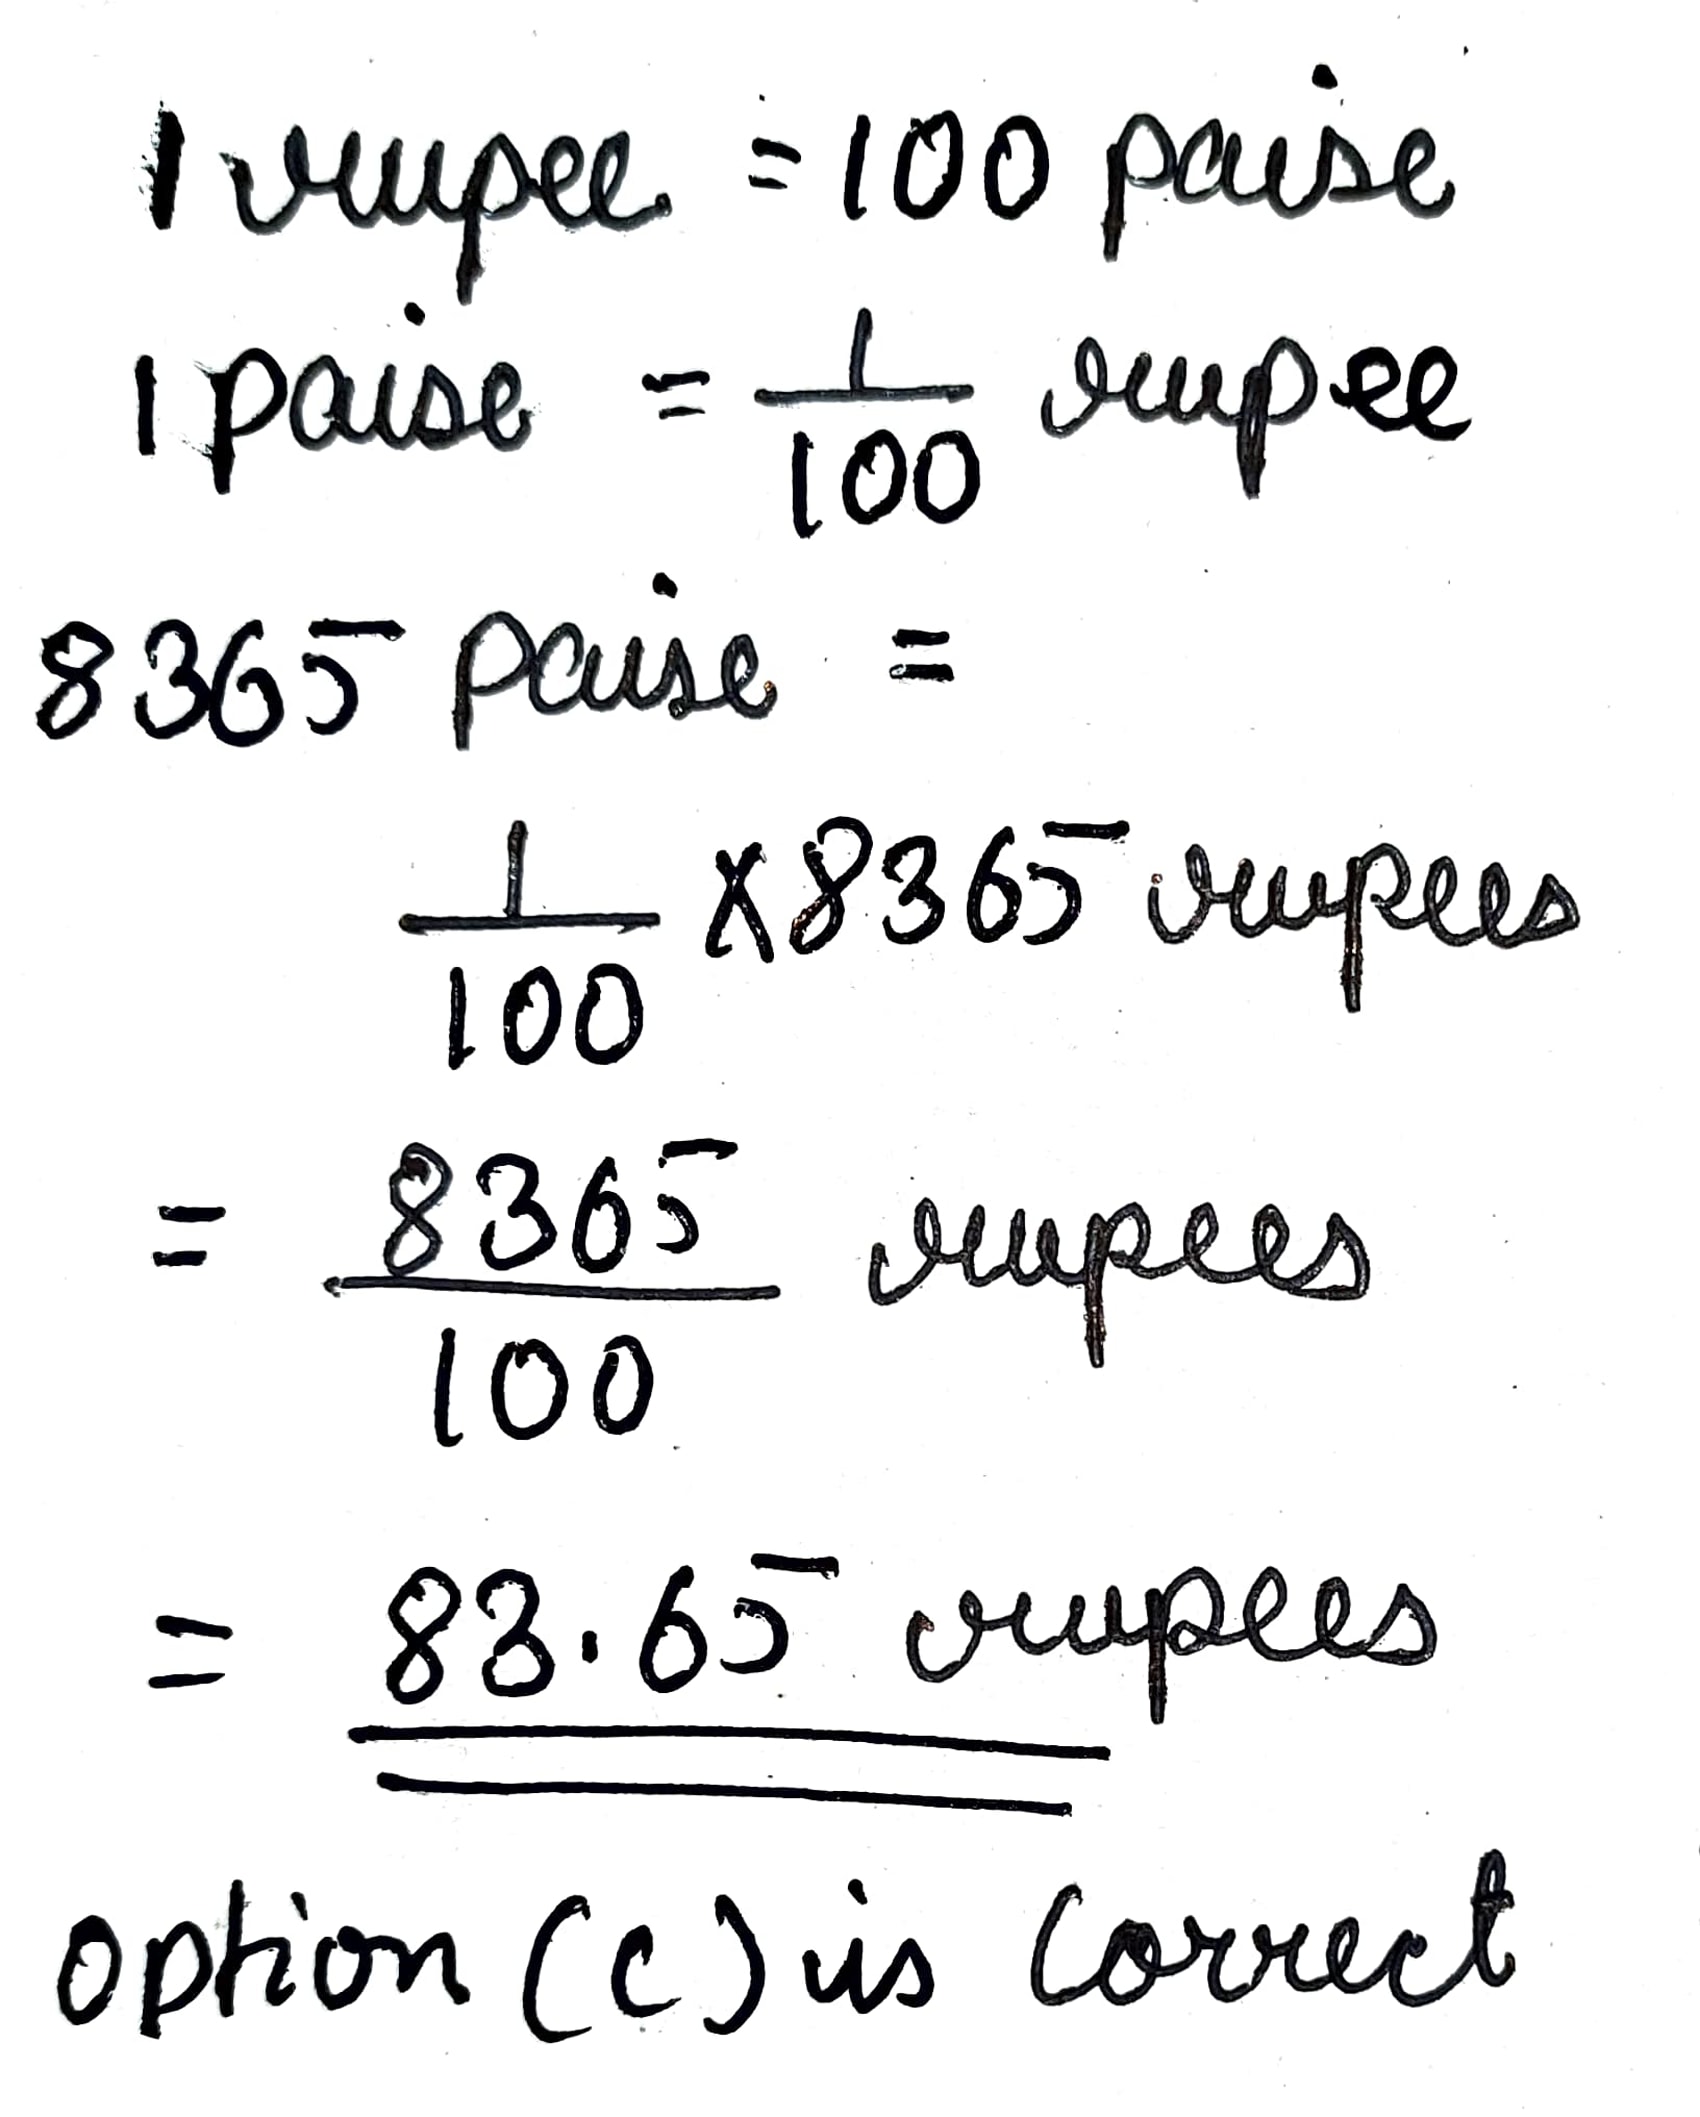 1 rupee = 100 paise
1 paise = 1/100 rupee
8365 paise =
1/100 x 8365 rupees
= 8365/100 rupees
= 83.65 rupees
option (c) is correct